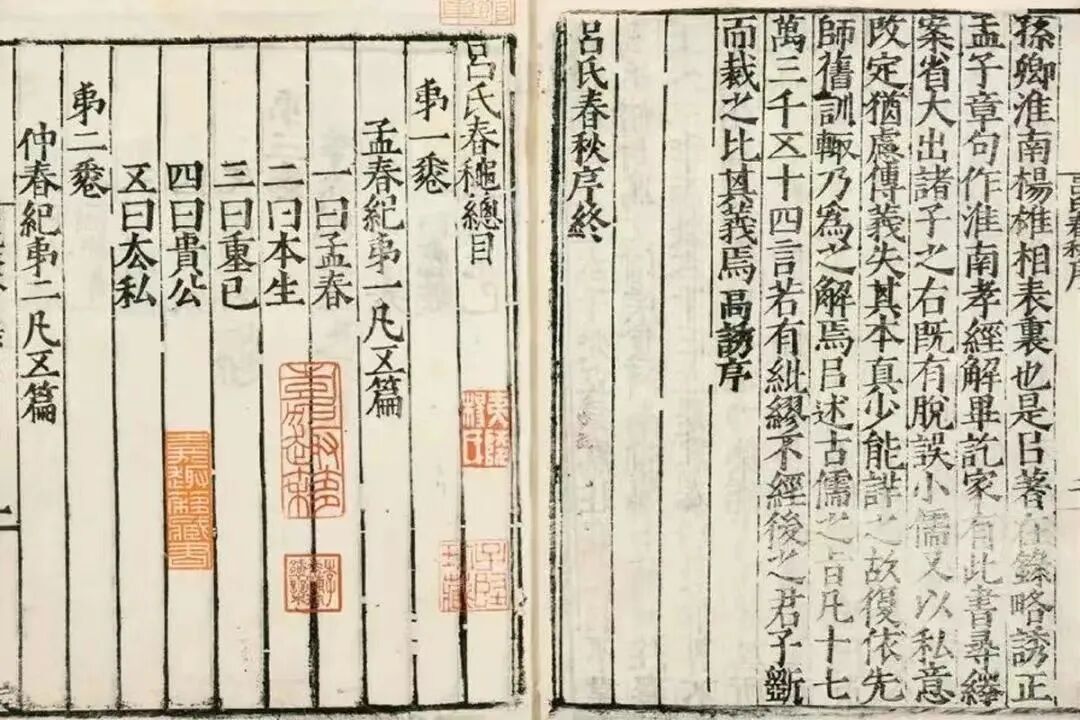 孫卿淮南楊雄相表裏也是以著在錄略誘正
孟子章句作淮南孝經解畢訖家有此書尋繹
案省大出諸子之右既有脫誤小儒又以私意
改定猶慮傳義失其本真少能詳之故復依先
師舊訓輙乃爲之解焉以述古儒之旨凡十七
萬三千五十四言若有紕繆不經後之君子斷
而裁之比其義焉高誘序
呂氏春秋序終
呂氏春秋總目
弟一卷
孟春紀弟一凡五篇
一曰孟春
二曰本生
三曰重己
四曰貴公
五曰去私
弟二卷
仲春紀弟二凡五篇